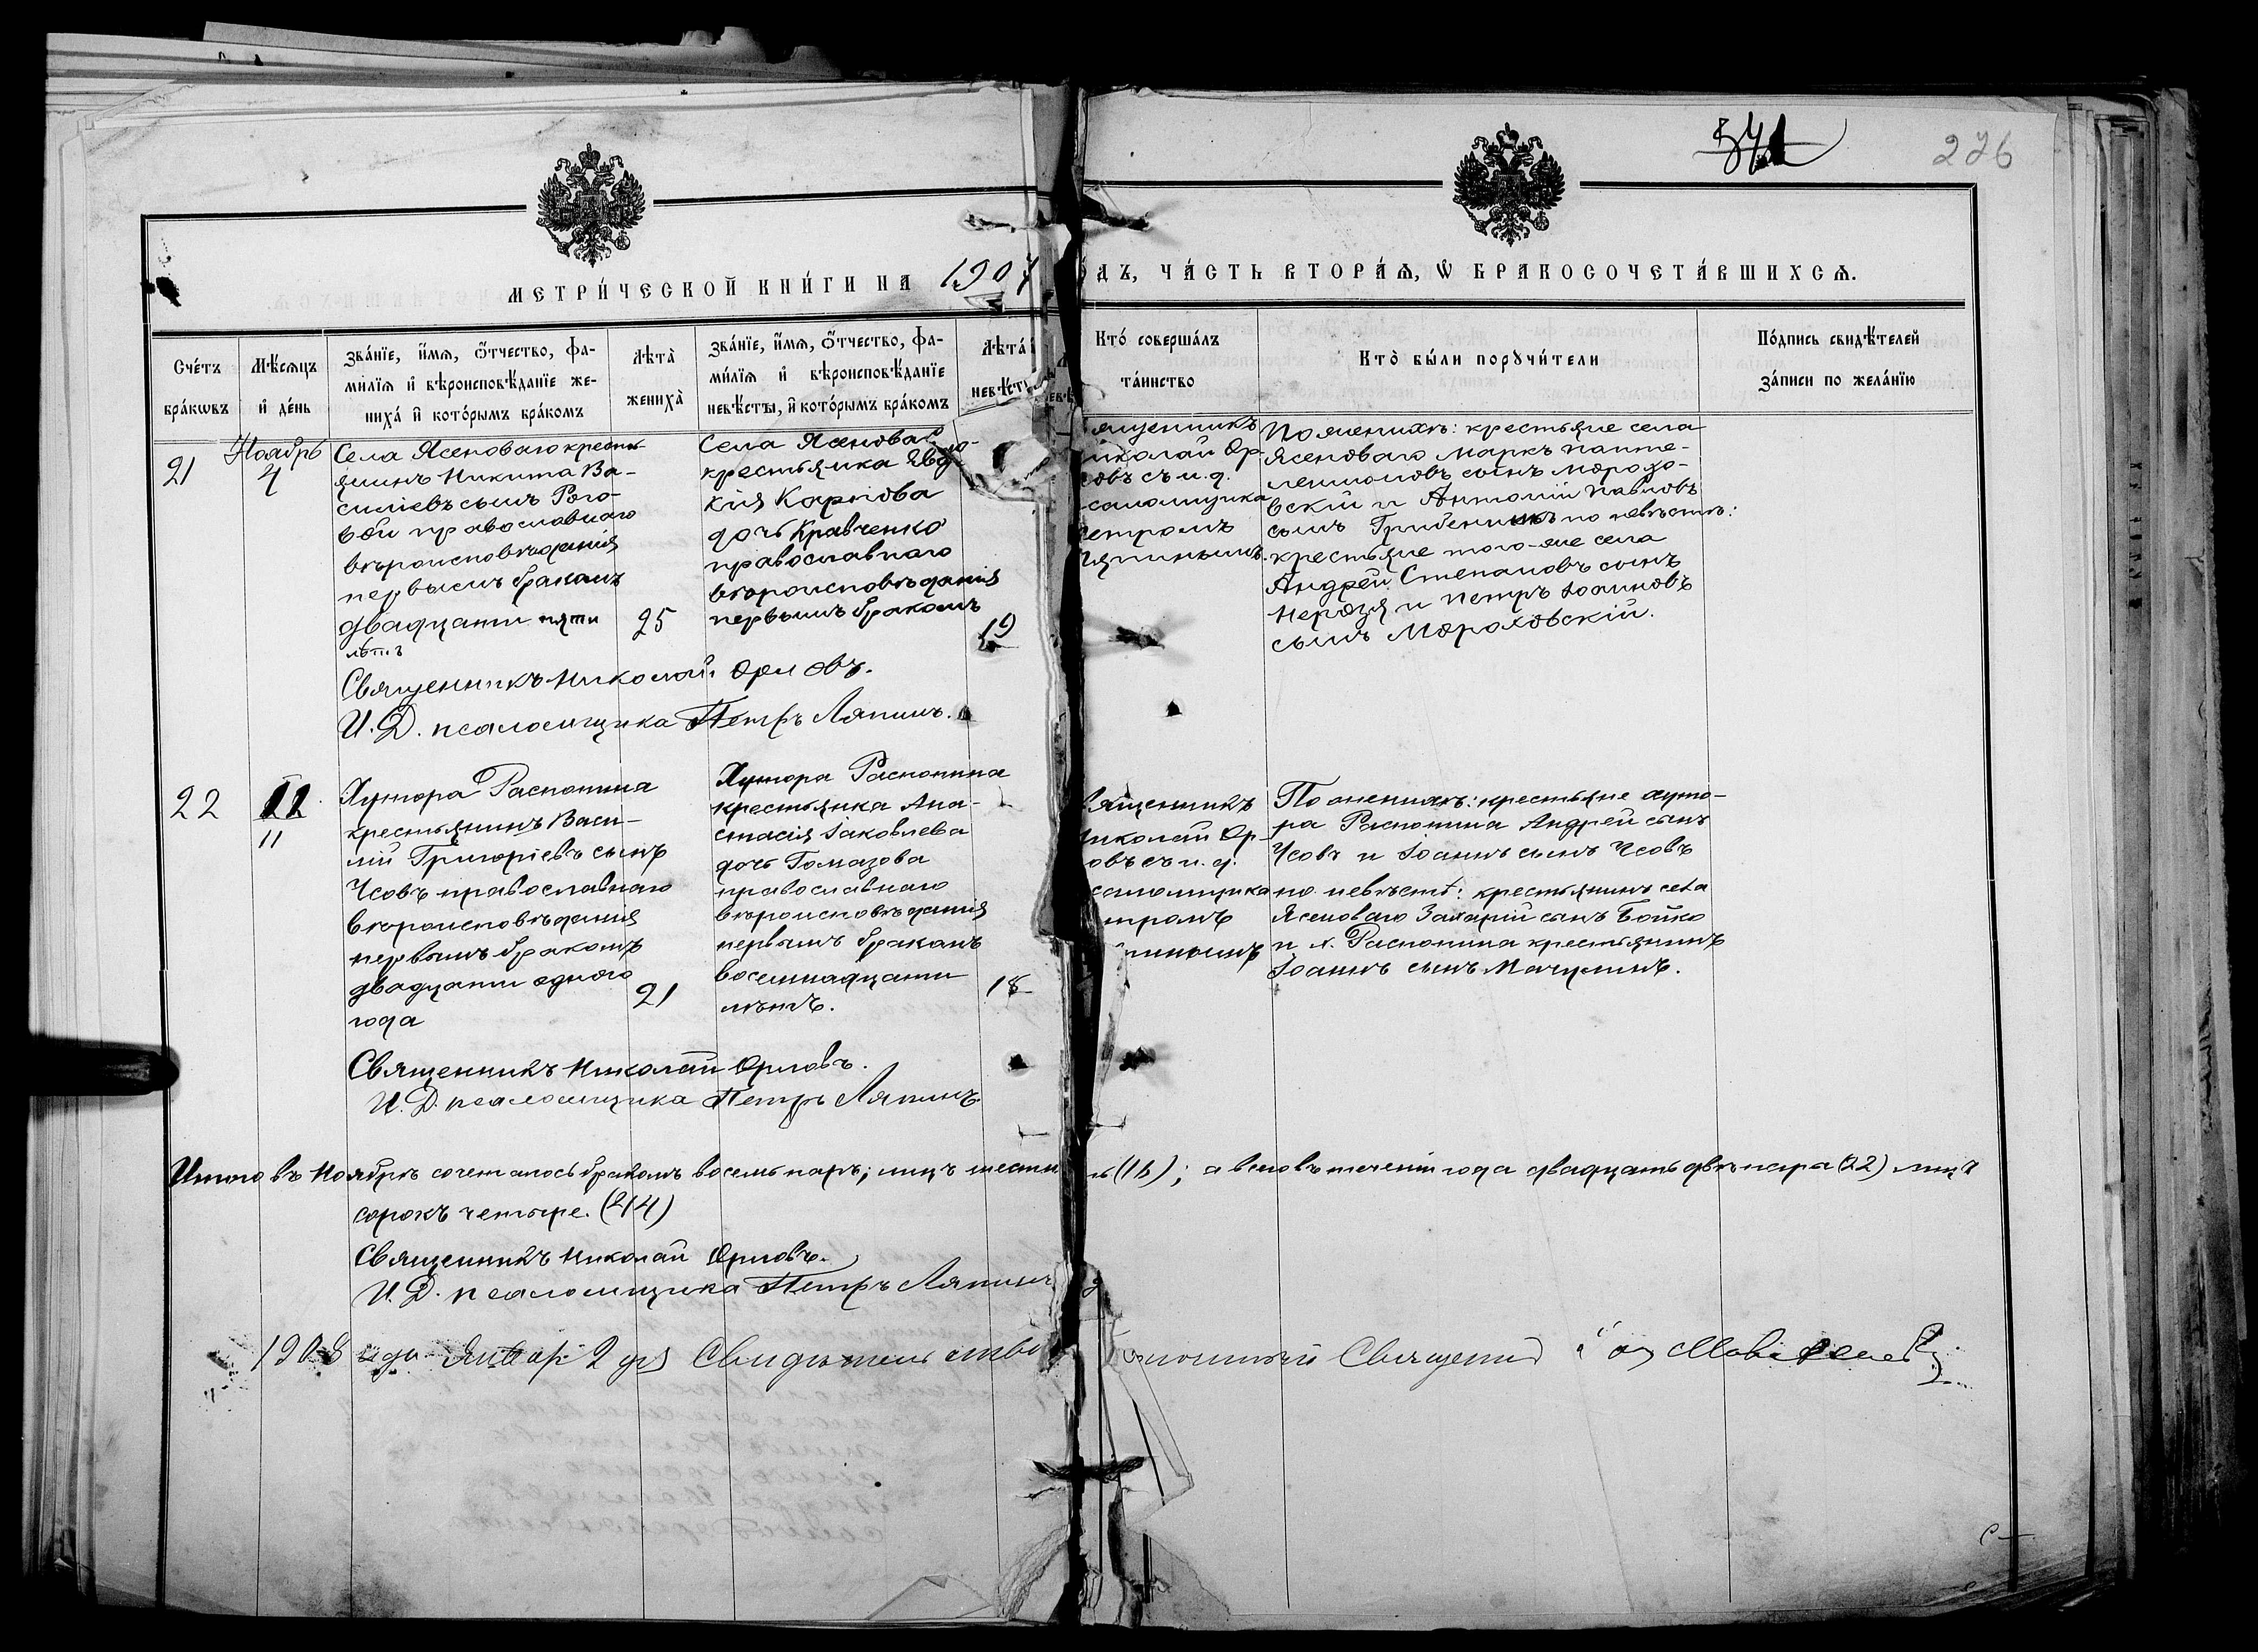 276
МЕТРИ́ЧЕСКОЙ КНИ́ГИ НА 1907
ДЪ, ЧА́СТЬ ВТОРА́Ѧ, Ѡ҆ БРАКОСОЧЕТА́ВШИХСѦ.
Сче́тъ бра́кѡвъ
Мѣ́сѧцъ и҆ де́нь
Зва́нїе, и҆́мѧ, ѻ҆́тчество, фа-
ми́лїѧ и҆ вѣроисповѣ́данїе же-
ниха̀ и҆ кото́рымъ бра́комъ
Лѣта̀ жениха̀
Зва́нїе, и҆́мѧ, ѻ҆́тчество, фа-
ми́лїѧ и҆ вѣроисповѣ́данїе
невѣ́сты, и҆ кото́рымъ бра́комъ
Лѣта̀ невѣ́ст
Кто́ соверша́лъ
та́инство
Кто̀ бы́ли порꙋчи́тели
По́дпись свидѣ́телей
за́писи по жела́нїю
21
Ноябрь
4
Села Ясеноваго кресть-
янинъ Никита Ва-
силіевъ сынъ Рого-
вой православнаго
вѣроисповѣданія
первымъ бракомъ
двадцати пяти
лѣтъ
25
Села Ясеноваго
крестьянка Евдо-
кія Карпова
дочь Кравченко
православнаго
вѣроисповѣданія
первымъ бракомъ
19
ященникъ
иколай Ор-
овъ съ и. д.
саломщика
етромъ
япинымъ.
По женихѣ: крестьяне села
Ясеноваго Маркъ Панте-
леимоновъ сынъ Морозо-
вскій и Антоній Павловъ
сынъ по невѣстѣ:
крестьяне того-же села
Андрей Степановъ сынъ
и Петръ Іоанновъ
сынъ Мороховскій.
Священникъ Николай Орловъ.
И. Д. псаломщика Петръ Ляпинъ.
22
11
11
Хутора Распопина
крестьянинъ Васи-
лій Григоріевъ сынъ
Усовъ православнаго
вѣроисповѣданія
первымъ бракомъ
двадцати одного
года
21
Хутора Распопина
крестьянка Ана-
стасія Іаковлева
дочь Гомазова
православнаго
вѣроисповѣданія
первымъ бракомъ
восемнадцати
лѣтъ.
18
вященникъ
иколай Ор-
овъ съ и. д.
саломщика
тромъ
пинымъ
По женихѣ: крестьяне хуто-
ра Распопина Андрей сынъ
Усовъ и Іоаннъ сынъ Усовъ
по невѣстѣ: крестьянинъ села
Ясеноваго Захарій сынъ Бойко
и х. Распопина крестьянинъ
Іоаннъ сынъ Мачулинъ.
Священникъ Николай Орловъ.
И. Д. псаломщика Петръ Ляпинъ.
Итого въ Ноябрѣ сочеталось бракомъ восемь паръ; лицъ шестн ть (16); а всего въ теченіи года двадцать двѣ пара (22) лицъ
сорокъ четыре. (44)
Священникъ Николай Орловъ.
И. Д. псаломщика Петръ Ляпинъ
1908 года Январ 2 дня Свидѣтельство